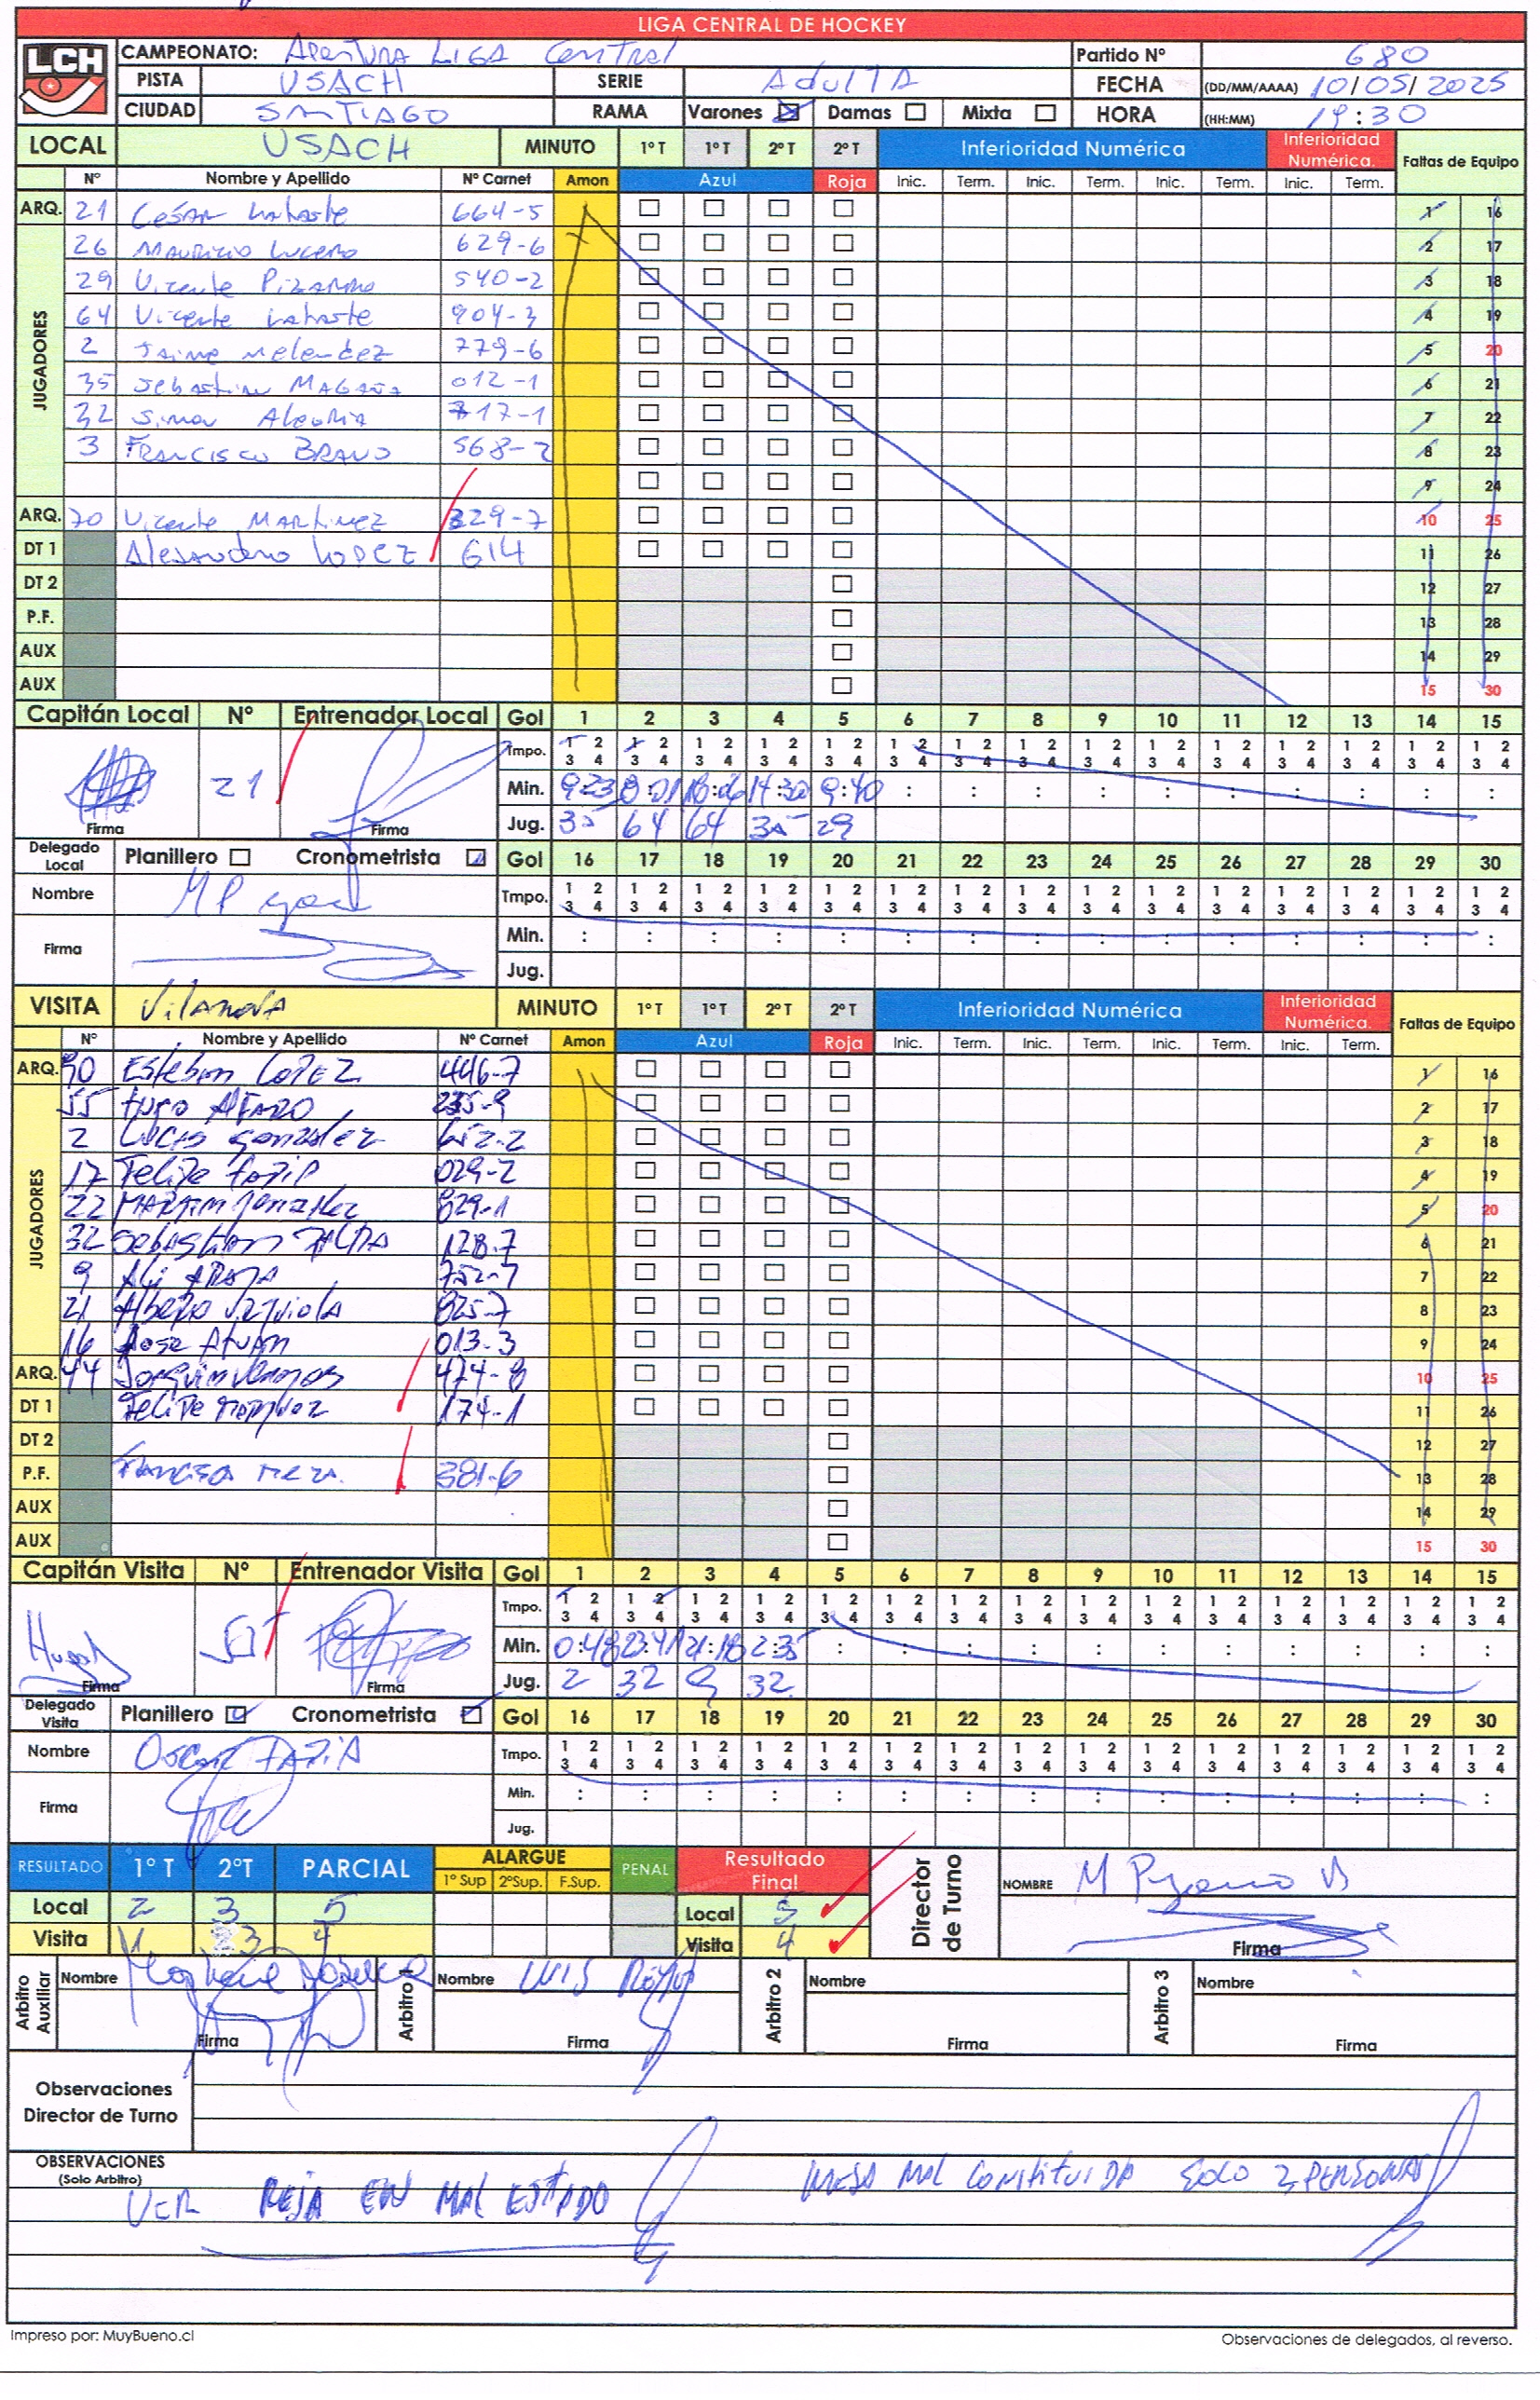 LIGA CENTRAL DE HOCKEY
LCH
CAMPEONATO: Apertura LIGA Central Partido Nº 680
PISTA USACH SERIE AdulTA FECHA (DD/MM/AAAA) 10/05/2025
CIUDAD SANTIAGO RAMA Varones Damas Mixta HORA (HH:MM) 19:30
LOCAL USACH MINUTO 1º T 1º T 2º T 2º T Inferioridad Numérica Inferioridad Numérica. Faltas de Equipo
Nº Nombre y Apellido Nº Carnet Amon Azul Roja Inic. Term. Inic. Term. Inic. Term. Inic. Term.
ARQ. 21 César 664-5 1 16
JUGADORES
26 Mauricio Lucero 629-6 2 17
29 Vicente Pizarro 540-2 3 18
64 Vicente 904-3 4 19
2 Jaime Melendez 779-6 5 20
35 Sebastian Magaña 012-1 6 21
32 Simon Alegria 717-1 7 22
3 FRANCISCO BRAVO 568-2 8 23
9 24
ARQ. 70 Vicente MARTINEZ 329-7 10 25
DT 1 Alejandro LOPEZ 614 11 26
DT 2 12 27
P.F. 13 28
AUX 14 29
AUX 15 30
Capitán Local Nº Entrenador Local Gol 1 2 3 4 5 6 7 8 9 10 11 12 13 14 15
Tmpo. 1 2 1 2 1 2 1 2 1 2 1 2 1 2 1 2 1 2 1 2 1 2 1 2 1 2 1 2 1 2
3 4 3 4 3 4 3 4 3 4 3 4 3 4 3 4 3 4 3 4 3 4 3 4 3 4 3 4 3 4
21 Min. 9:23 8:01 18:06 14:30 9:40 : : : : : : : : : :
Firma Firma Jug. 35 64 64 35 29
Delegado Local Planillero Cronometrista Gol 16 17 18 19 20 21 22 23 24 25 26 27 28 29 30
Nombre Tmpo. 1 2 1 2 1 2 1 2 1 2 1 2 1 2 1 2 1 2 1 2 1 2 1 2 1 2 1 2 1 2
3 4 3 4 3 4 3 4 3 4 3 4 3 4 3 4 3 4 3 4 3 4 3 4 3 4 3 4 3 4
Firma Min. : : : : : : : : : : : : : : :
Jug.
VISITA Vilanova MINUTO 1º T 1º T 2º T 2º T Inferioridad Numérica Inferioridad Numérica. Faltas de Equipo
Nº Nombre y Apellido Nº Carnet Amon Azul Roja Inic. Term. Inic. Term. Inic. Term. Inic. Term.
ARQ. 90 Esteban LOPEZ 446-7 1 16
JUGADORES
55 Hugo Alfaro 235-9 2 17
2 Lucas Gonzalez 652-2 3 18
17 Felipe Tapia 029-2 4 19
22 MARTIN Gonzalez 829-1 5 20
32 Sebastian 128-7 6 21
9 Ali ARAYA 752-7 7 22
21 Alberto Urquiola 825-7 8 23
16 Jose 013-3 9 24
ARQ. 44 Joaquin 474-8 10 25
DT 1 Felipe 174-1 11 26
DT 2 12 27
P.F. Francisca MEZA. 381-6 13 28
AUX 14 29
AUX 15 30
Capitán Visita Nº Entrenador Visita Gol 1 2 3 4 5 6 7 8 9 10 11 12 13 14 15
Tmpo. 1 2 1 2 1 2 1 2 1 2 1 2 1 2 1 2 1 2 1 2 1 2 1 2 1 2 1 2 1 2
3 4 3 4 3 4 3 4 3 4 3 4 3 4 3 4 3 4 3 4 3 4 3 4 3 4 3 4 3 4
Min. 0:48 23:41 21:18 2:35 : : : : : : : : : : :
Firma Firma Jug. 2 32 9 32
Delegado Visita Planillero Cronometrista Gol 16 17 18 19 20 21 22 23 24 25 26 27 28 29 30
Nombre Oscar TAPIA Tmpo. 1 2 1 2 1 2 1 2 1 2 1 2 1 2 1 2 1 2 1 2 1 2 1 2 1 2 1 2 1 2
3 4 3 4 3 4 3 4 3 4 3 4 3 4 3 4 3 4 3 4 3 4 3 4 3 4 3 4 3 4
Firma Min. : : : : : : : : : : : : : : :
Jug.
RESULTADO 1º T 2ºT PARCIAL ALARGUE PENAL Resultado Final Director de Turno NOMBRE
1º Sup 2ºSup. F.Sup.
Local 2 3 5 Local 5
Visita 1 3 4 Visita 4 Firma
Arbitro Auxiliar Nombre Arbitro 1 Nombre LUIS Arbitro 2 Nombre Arbitro 3 Nombre
Firma Firma Firma Firma
Observaciones Director de Turno
OBSERVACIONES (Solo Arbitro)
VER REJA EN MAL ESTADO MESA MAL CONSTITUIDA SOLO 2 PERSONAS
Impreso por: MuyBueno.cl Observaciones de delegados, al reverso.